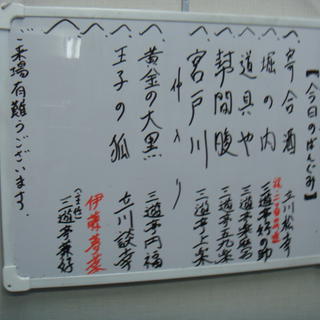 【今日のばんぐみ】
一、寄合酒 立川松幸
一、堀の内 三遊亭好の助
一、道具や 三遊亭楽麻呂
一、幇間腹 三遊亭五九楽
一、宮戸川 三遊亭上楽
仲入り
一、黄金の大黒 三遊亭円福
一、王子の狐 立川談幸
三遊亭兼好
ご来場有難うございます。